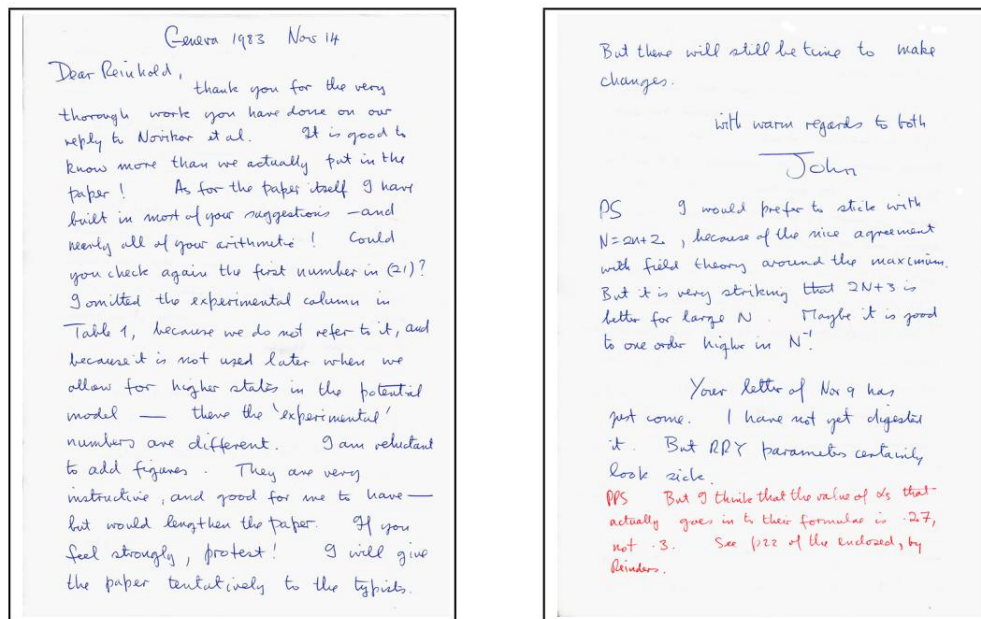 Geneva 1983 Nov 14
Dear Reinhold,
thank you for the very
thorough work you have done on our
reply to Novikov et al. It is good to
know more than we actually put in the
paper! As for the paper itself I have
built in most of your suggestions — and
nearly all of your arithmetic! Could
you check again the first number in (21)?
I omitted the experimental column in
Table 1, because we do not refer to it, and
because it is not used later when we
allow for higher states in the potential
model — there the 'experimental'
numbers are different. I am reluctant
to add figures. They are very
instructive, and good for me to have —
but would lengthen the paper. If you
feel strongly, protest! I will give
the paper tentatively to the typists.
But there will still be time to make
changes.
with warm regards to both
John
PS I would prefer to stick with
N=2n+2, because of the nice agreement
with field theory around the maximum.
But it is very striking that 2N+3 is
better for large N. Maybe it is good
to one order higher in N⁻¹!
Your letter of Nov 9 has
just come. I have not yet digested
it. But RRY parameters certainly
look sick.
PPS But I think that the value of αs that
actually goes in to their formulae is .27,
not .3. See p22 of the enclosed, by
Reinders.